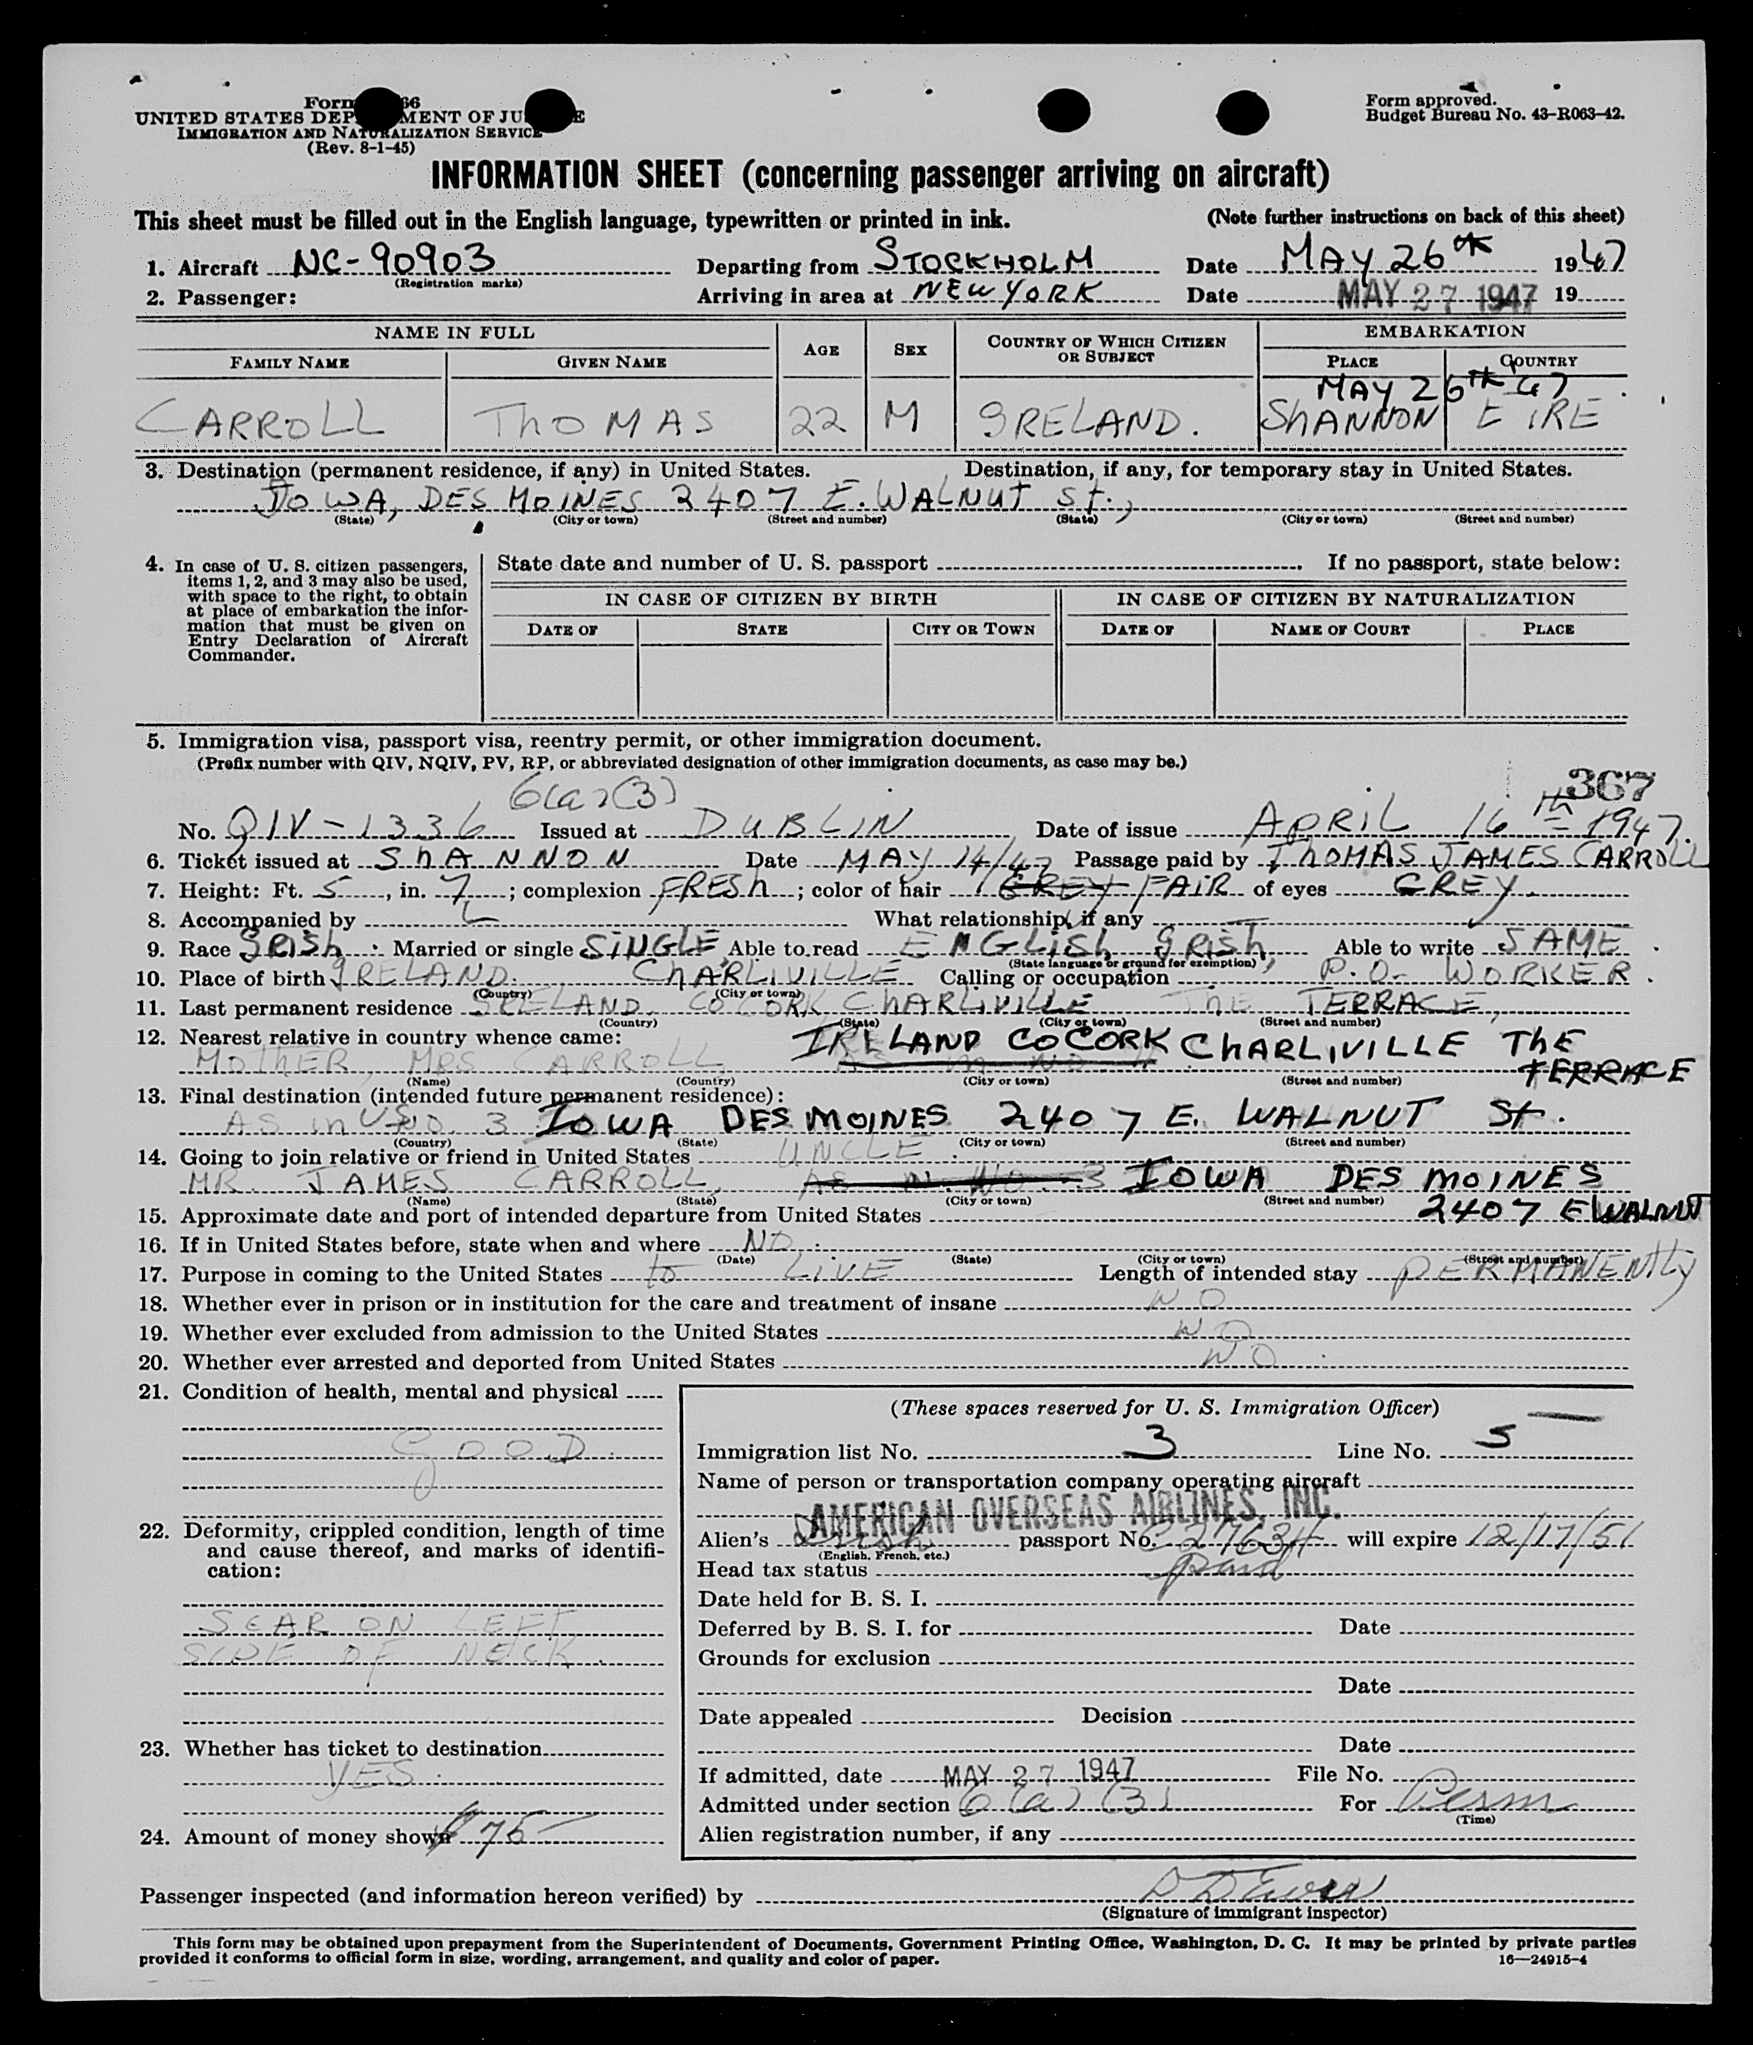 Form 66
UNITED STATES DEP MENT OF JU E
IMMIGRATION AND NATURALIZATION SERVICE
(Rev. 8-1-45)
Form approved.
Budget Bureau No. 43-R063-42.
INFORMATION SHEET (concerning passenger arriving on aircraft)
This sheet must be filled out in the English language, typewritten or printed in ink. (Note further instructions on back of this sheet)
1. Aircraft NC-90903 Departing from STOCKHOLM Date MAY 26th 1947
(Registration marks)
2. Passenger: Arriving in area at NEW YORK Date MAY 27 1947 19
NAME IN FULL AGE SEX COUNTRY OF WHICH CITIZEN OR SUBJECT EMBARKATION
FAMILY NAME GIVEN NAME PLACE COUNTRY
MAY 26TH 47
CARROLL THOMAS 22 M IRELAND. SHANNON EIRE
3. Destination (permanent residence, if any) in United States. Destination, if any, for temporary stay in United States.
IOWA, DES MOINES 2407 E. WALNUT St.,
(State) (City or town) (Street and number) (State) (City or town) (Street and number)
4. In case of U. S. citizen passengers, items 1, 2, and 3 may also be used, with space to the right, to obtain at place of embarkation the information that must be given on Entry Declaration of Aircraft Commander.
State date and number of U. S. passport . If no passport, state below:
IN CASE OF CITIZEN BY BIRTH IN CASE OF CITIZEN BY NATURALIZATION
DATE OF STATE CITY OR TOWN DATE OF NAME OF COURT PLACE
5. Immigration visa, passport visa, reentry permit, or other immigration document.
(Prefix number with QIV, NQIV, PV, RP, or abbreviated designation of other immigration documents, as case may be.)
6(a)(3) 367
No. QIV-1336 Issued at DUBLIN Date of issue APRIL 16th 1947.
6. Ticket issued at SHANNON Date MAY 14/47 Passage paid by THOMAS JAMES CARROLL
7. Height: Ft. 5, in. 7; complexion FRESH; color of hair GREY FAIR of eyes GREY.
8. Accompanied by What relationship, if any
9. Race IRISH. Married or single SINGLE Able to read ENGLISH IRISH, Able to write SAME.
(State language or ground for exemption)
10. Place of birth IRELAND. CHARLIVILLE Calling or occupation P.O. WORKER.
(Country) (City or town)
11. Last permanent residence IRELAND. CO CORK, CHARLIVILLE THE TERRACE,
(Country) (State) (City or town) (Street and number)
12. Nearest relative in country whence came: IRELAND CO CORK CHARLIVILLE THE TERRACE
MOTHER, MRS CARROLL,
(Name) (Country) (City or town) (Street and number)
13. Final destination (intended future permanent residence):
AS in NO. 3 US IOWA DES MOINES 2407 E. WALNUT St.
(Country) (State) (City or town) (Street and number)
14. Going to join relative or friend in United States UNCLE.
MR. JAMES CARROLL, AS IN NO. 3 IOWA DES MOINES
(Name) (State) (City or town) (Street and number)
15. Approximate date and port of intended departure from United States 2407 E WALNUT
16. If in United States before, state when and where NO.
(Date) (State) (City or town) (Street and number)
17. Purpose in coming to the United States to LIVE Length of intended stay PERMANENTLY
18. Whether ever in prison or in institution for the care and treatment of insane NO
19. Whether ever excluded from admission to the United States NO
20. Whether ever arrested and deported from United States NO.
21. Condition of health, mental and physical
GOOD.
22. Deformity, crippled condition, length of time and cause thereof, and marks of identification:
SCAR ON LEFT
SIDE OF NECK.
23. Whether has ticket to destination
YES.
24. Amount of money shown $75
(These spaces reserved for U. S. Immigration Officer)
Immigration list No. 3 Line No. 5
Name of person or transportation company operating aircraft
AMERICAN OVERSEAS AIRLINES, INC.
Alien's Irish passport No. C27634 will expire 12/17/51
(English, French, etc.)
Head tax status paid
Date held for B. S. I.
Deferred by B. S. I. for Date
Grounds for exclusion
Date
Date appealed Decision
Date
If admitted, date MAY 27 1947 File No.
Admitted under section 6(a)(3) For Perm
(Time)
Alien registration number, if any
Passenger inspected (and information hereon verified) by
(Signature of immigrant inspector)
This form may be obtained upon prepayment from the Superintendent of Documents, Government Printing Office, Washington, D. C. It may be printed by private parties
provided it conforms to official form in size, wording, arrangement, and quality and color of paper. 16—24915-4